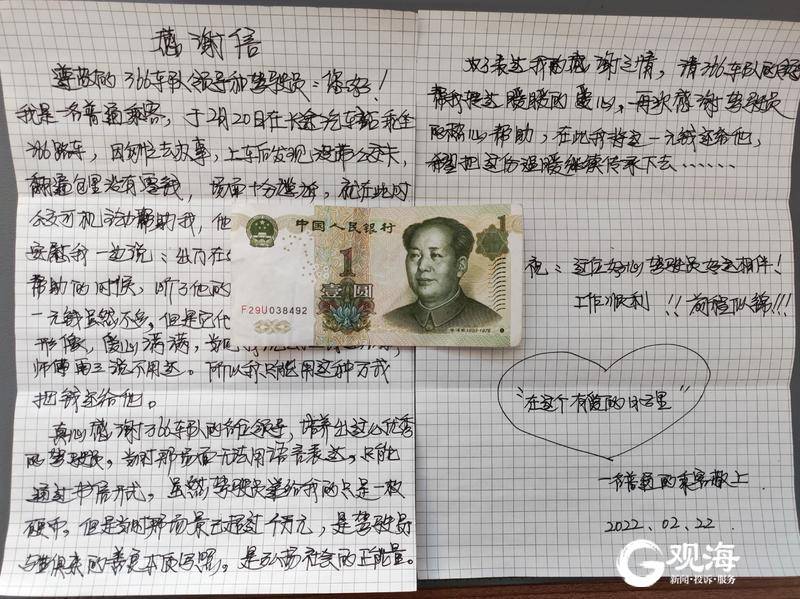 感谢信
尊敬的366车队领导和驾驶员：您好！
我是一名普通乘客，于2月20日在长途汽车站乘坐
366路车，因匆忙去办事，上车后发现没带公交卡，
翻遍包里没有零钱，场面十分尴尬，就在此时
公交司机主动帮助我，他
安慰我一边说：出门在
帮助的时候，听了他的
一元钱虽然不多，但是它代
形象，爱心满满，当
师傅再三说不用还。所以我只能用这种方式
把钱还给他。
真心感谢366车队的各位领导，培养出这么优秀
的驾驶员，当时那场面无法用语言表达，只能
通过书信形式，虽然驾驶员递给我的只是一枚
硬币，但是当时那场景已超过千万元，是驾驶员
与生俱来的善良本质写照，是弘扬社会的正能量。
为了表达我的感谢之情，请366车队的领
帮我转达暖暖的爱心，再次感谢驾驶员
的热心帮助，在此我将这一元钱还给他，
希望把这份温暖继续传承下去……
祝：这位好心驾驶员好运相伴！
工作顺利！！前程似锦！！！
"在这个有爱的日子里"
一名普通的乘客敬上
2022.02.22.
中国人民银行
1
1
壹圆
F29U038492
毛泽东 1893-1976
观海
新闻·投诉·服务